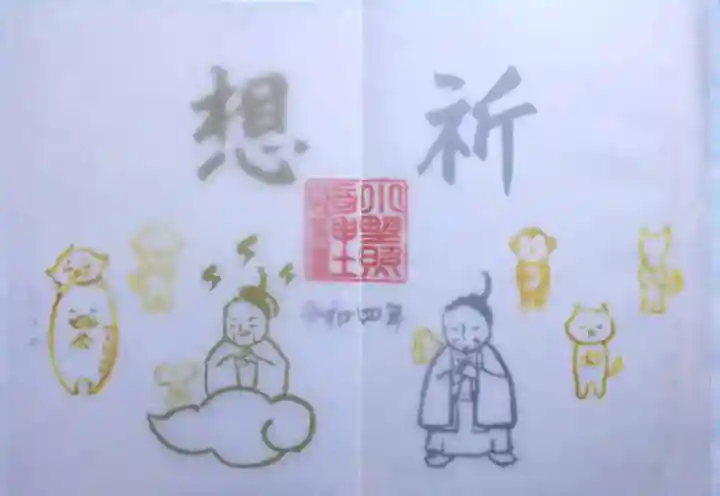 祈想
小野照
崎神社
令和四年